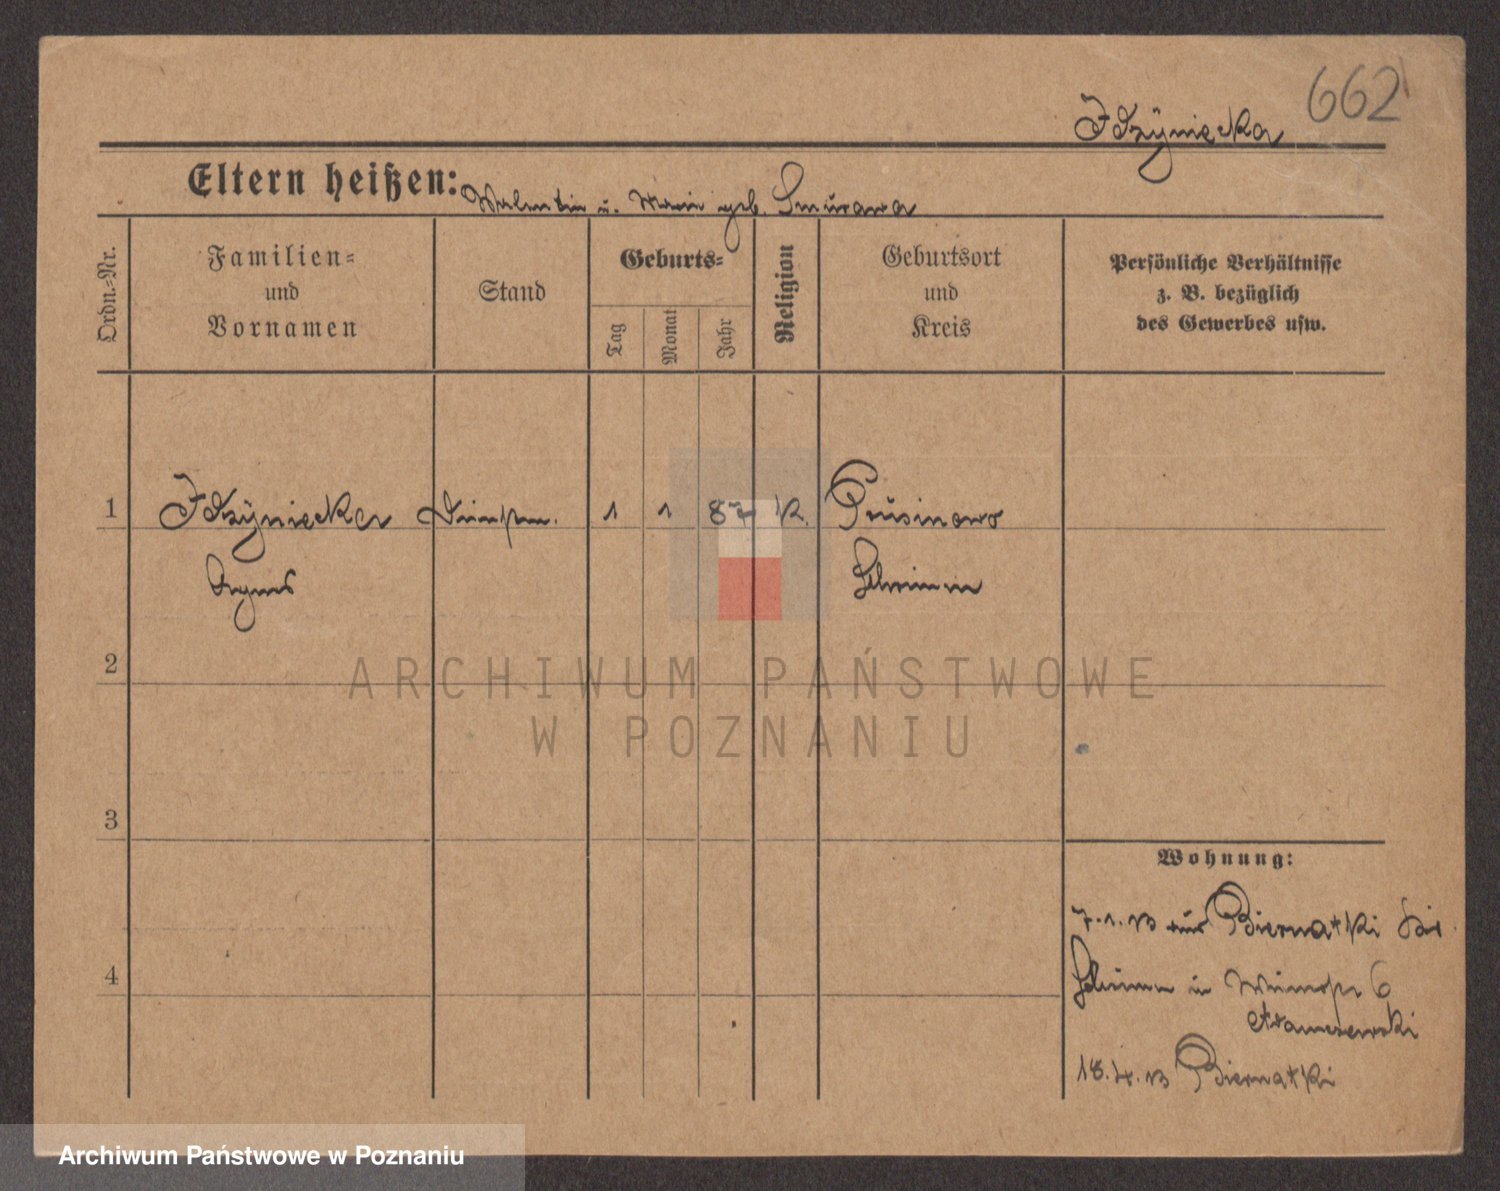 662
Idzÿniecka
Eltern heißen: Valentin u. Marie geb. Smurawa
Ordn.-Nr.
Familien- und Vornamen
Stand
Geburts-
Tag
Monat
Jahr
Religion
Geburtsort und Kreis
Persönliche Verhältnisse z. B. bezüglich des Gewerbes usw.
1 Idzÿniecka 1 1 87 K. Prusinowo
Agnes Schrimm
2
ARCHIWUM PAŃSTWOWE
W POZNANIU
3
Wohnung:
7.1.13 aus Biernatki Kr.
Schrimm in 6
Adamczewski
4
18.4.13 Biernatki
Archiwum Państwowe w Poznaniu